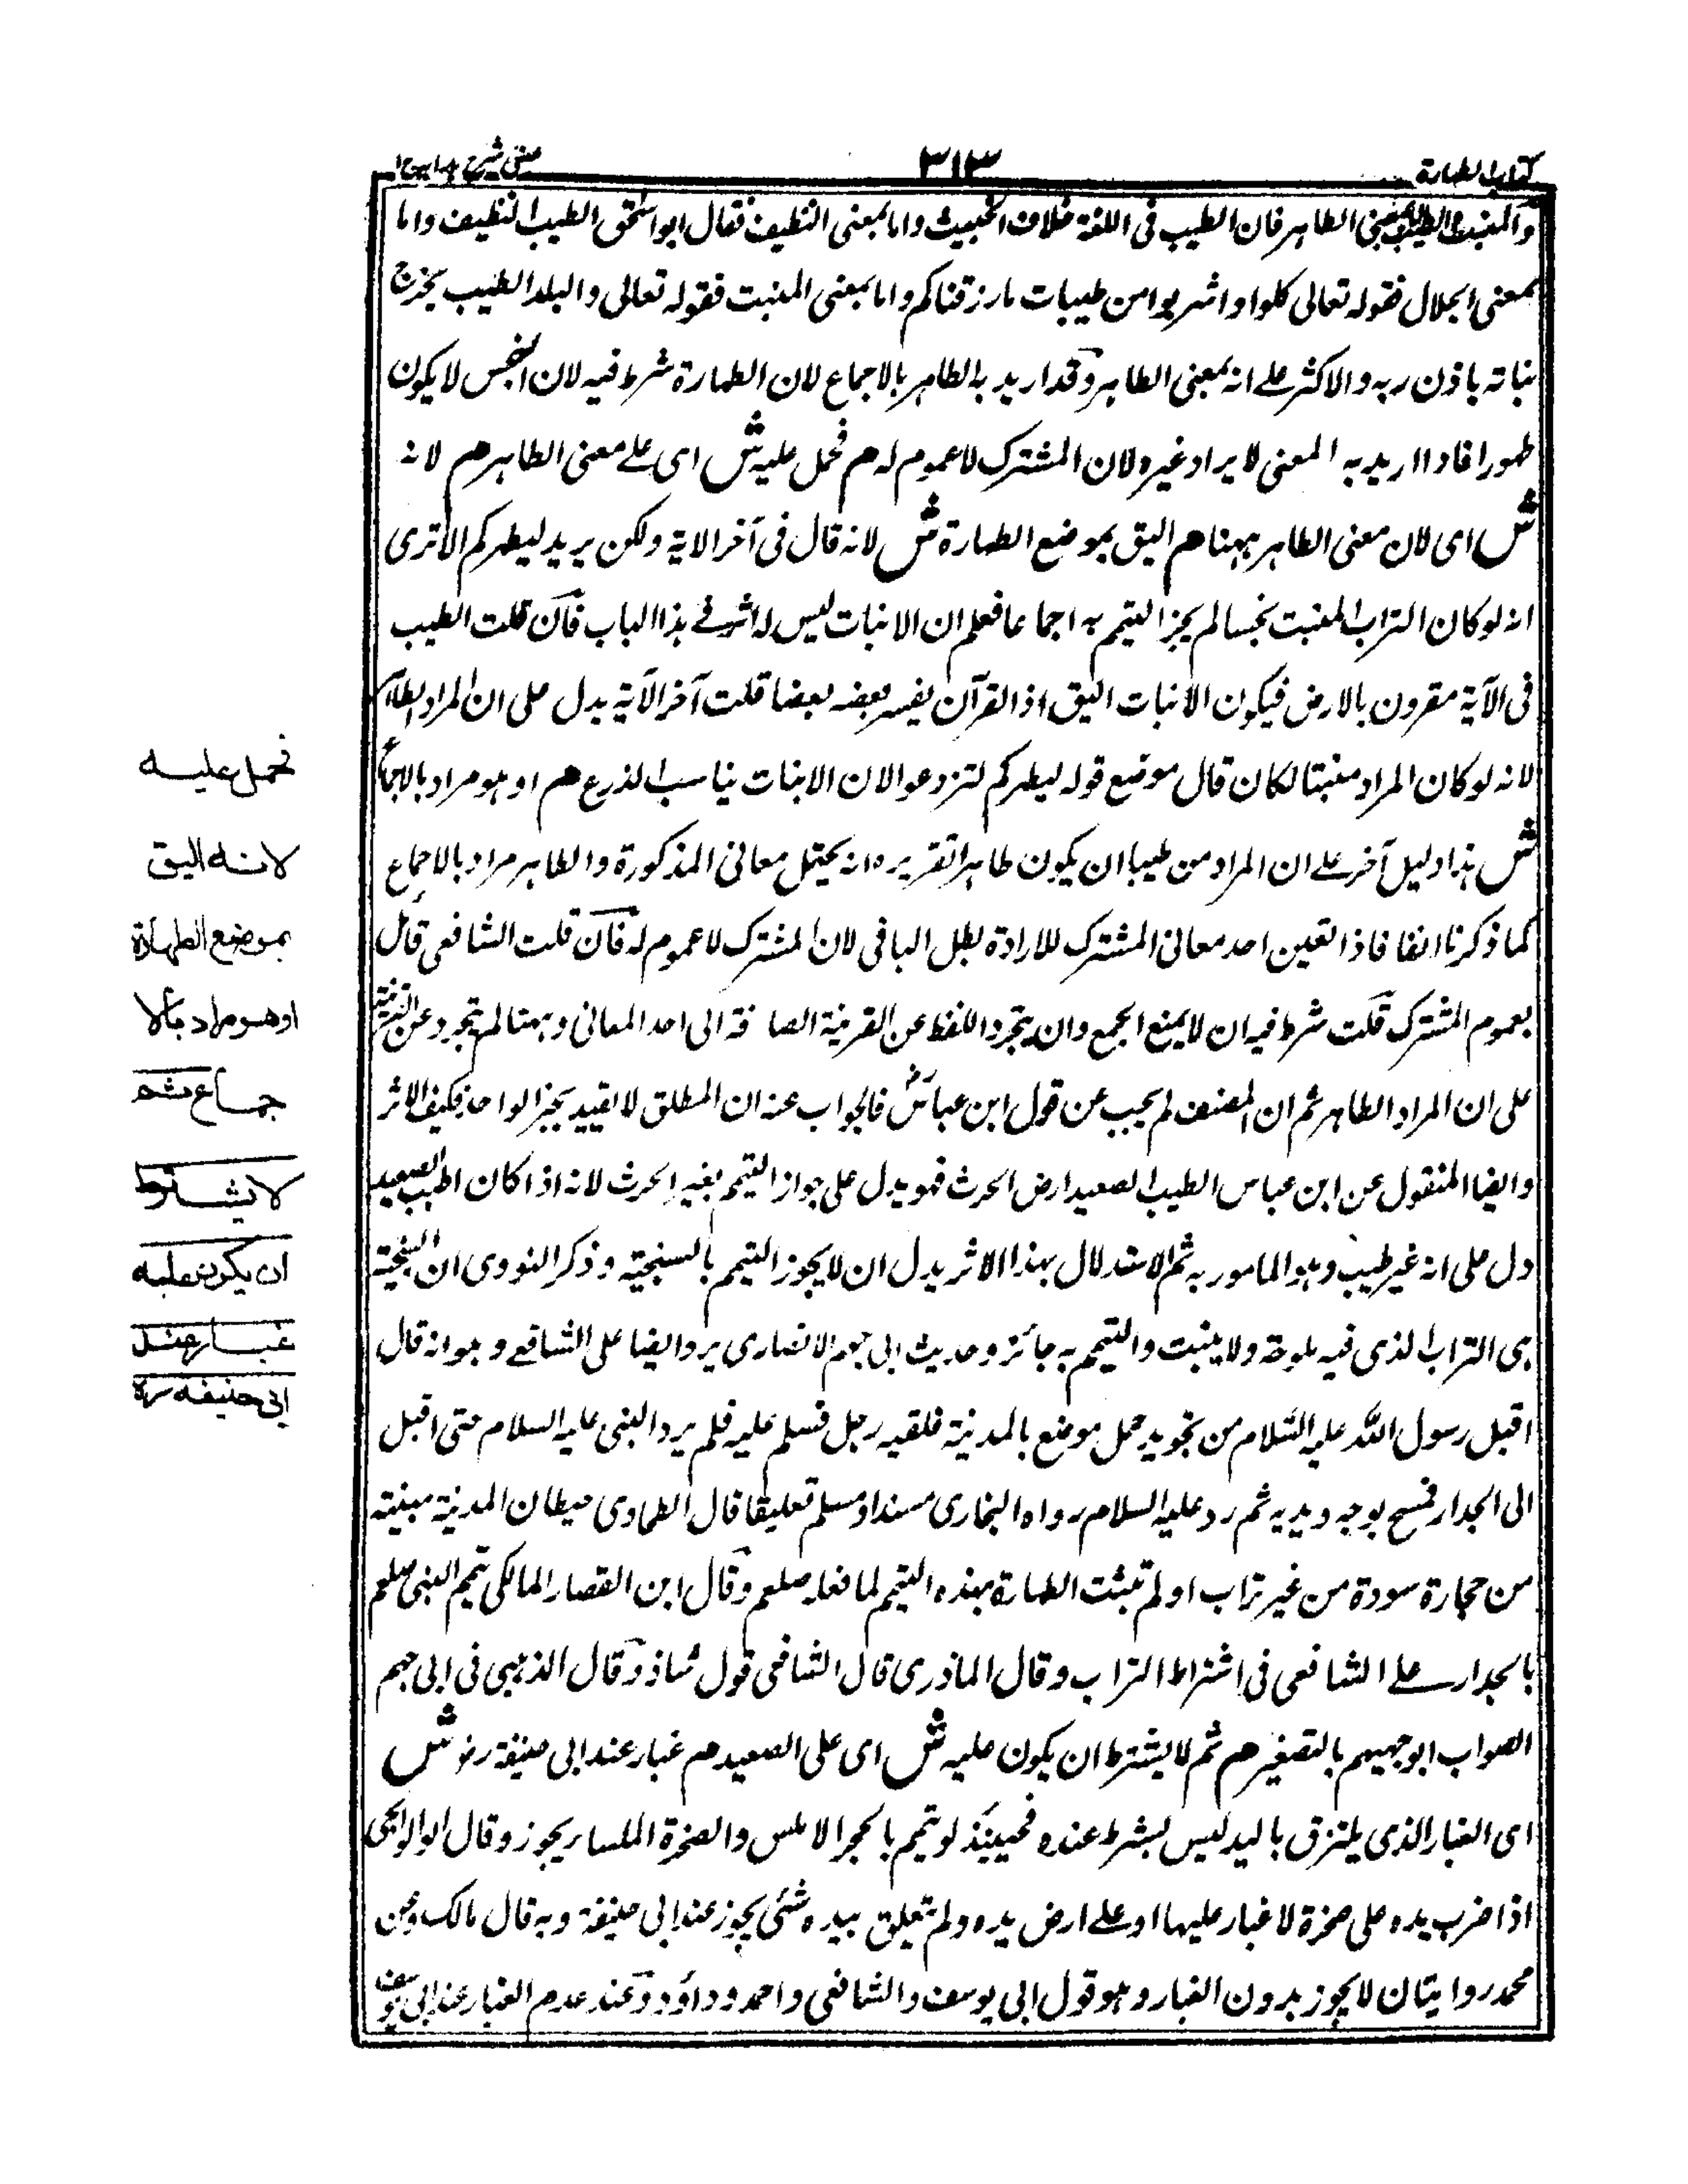 كتاب الطهارة
٣١٣
عينى شرح هداية ج ١
والمنبت والطيب بمعنى الطاهر فان الطيب فى اللغة خلاف الخبيث واما بمعنى النظيف فقال ابو اسحق الطيب النظيف واما
بمعنى الحلال فقوله تعالى كلوا واشربوا من طيبات مارزقناكم واما بمعنى المنبت فقوله تعالى والبلد الطيب يخرج
نباته باذن ربه والاكثر على انه بمعنى الطاهر وقد اريد بالطاهر بالاجماع لان الطهارة شرط فيه لان النجس لا يكون
طهورا فاذا اريد به المعنى لا يراد غيره لان المشترك لا عموم له م فحمل عليه ش اى على معنى الطاهر م لانه
ش اى لان معنى الطاهر ههنا م اليق بموضع الطهارة ش لانه قال فى آخر الاية ولكن يريد ليطهركم الا ترى
انه لو كان التراب المنبت نجسا لم يجز التيمم به اجماعا فعلم ان الانبات ليس له اثر فى هذا الباب فان قلت الطيب
فى الآية مقرون بالارض فيكون الانبات اليق اذ القرآن يفسر بعضه بعضا قلت آخر الآية يدل على ان المراد الطاهر
لانه لو كان المراد منبتا لكان قال موضع قوله ليطهركم لتزدعوا لان الانبات يناسب الذرع م او هو مراد بالاجماع
ش هذا دليل آخر على ان المراد من طيبا ان يكون طاهرا تقريره انه يحتمل معانى المذكورة والطاهر مراد بالاجماع
كما ذكرنا انفا فاذا تعين احد معانى المشترك للارادة بطل الباقى لان المشترك لا عموم له فان قلت الشافعى قائل
بعموم المشترك قلت شرط فيه ان لا يمنع الجمع وان يتجرد اللفظ عن القرينة الصا فة الى احد المعانى وههنا لم يتجرد عن القرينة
على ان المراد الطاهر ثم ان المصنف لم يجب عن قول ابن عباس فالجواب عنه ان المطلق لا يقيد بخبر الواحد فكيف الاثر
وايضا المنقول عن ابن عباس الطيب الصعيد ارض الحرث فهو يدل على جواز التيمم بغير الحرث لانه اذا كان اطيب الصعيد
دل على انه غير طيب وهو المامور به ثم الاستدلال بهذا الاثر يدل ان لا يجوز التيمم بالسبخية وذكر النووى ان السبخية
هى التراب الذى فيه ملوحة ولا ينبت والتيمم به جائز وحديث ابى جهم الانصارى يرد ايضا على الشافعى وهو انه قال
اقبل رسول الله عليه السلام من نحو يدحمل موضع بالمدينة فلقيه رجل فسلم عليه فلم يرد النبى عليه السلام حتى اقبل
الى الجدار فمسح بوجه ويديه ثم رد عليه السلام رواه البخارى مسندا ومسلم تعليقا قال الطحاوى حيطان المدينة مبنية
من حجارة سودة من غير تراب او لم تثبت الطهارة بهذه التيمم لما فعله صلعم وقال ابن القصار المالكى تيمم النبى صلعم
بالجدار على الشافعى فى اشتراط التراب وقال الماذرى قال الشافعى قول شاذ وقال الذهبى فى ابى جهم
الصواب ابو جهيم بالتصغير م ثم لا يشترط ان يكون عليه ش اى على الصعيد م غبار عند ابى حنيفة رض ش
اى الغبار الذى يلتزق باليد ليس بشرط عنده فحينئذ لو تيمم بالحجر الاملس والصخرة الملساء يجوز وقال الوالوالجى
اذا ضرب يده على صخرة لا غبار عليها او على ارض يده ولم يتعلق بيده شئى يجوز عند ابى حنيفة وبه قال مالك وعن
محمد روايتان لا يجوز بدون الغبار وهو قول ابى يوسف والشافعى واحمد وداؤد وعند عدم الغبار عند ابى يوسف
فحمل عليه
لانه اليق
بموضع الطهارة
او هو مراد بالا
جماع ثم
لا يشترط
ان يكون عليه
غبار عند
ابى حنيفه ره